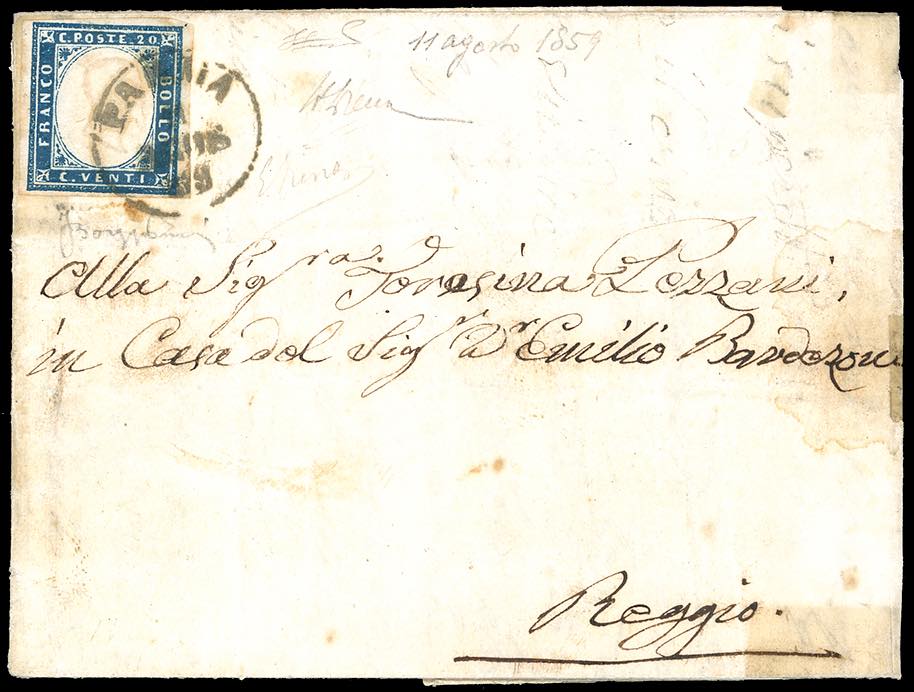 C. POSTE. 20.
FRANCO
BOLLO
C. VENTI
PARMA
11 agosto 1859
Alla Sig.ra Teresina Pezzani,
in Casa del Sig.r D.r Emilio
Reggio.